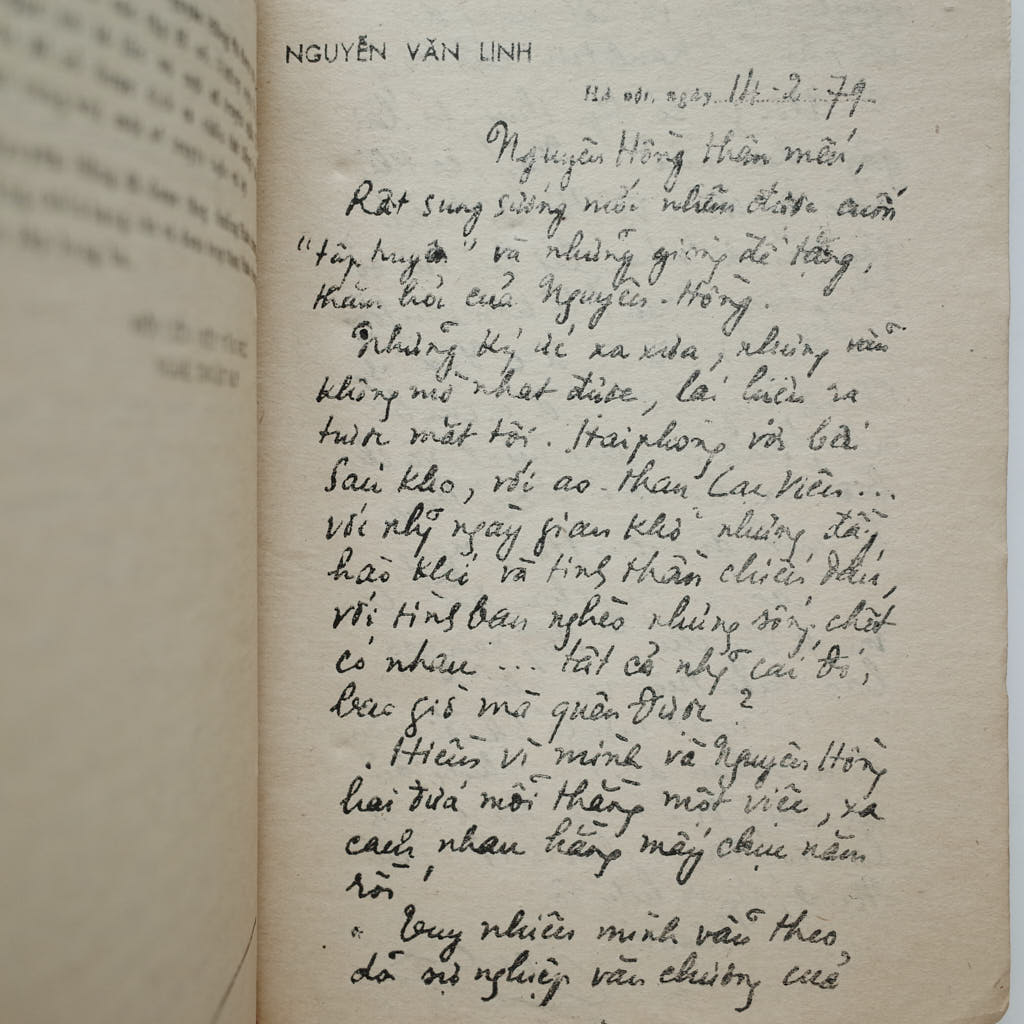 NGUYỄN VĂN LINH
Hà nội, ngày 14-2-79
Nguyên Hồng thân mến,
Rất sung sướng mới nhận được cuốn
"tập truyện" và những giòng đề tặng,
thăm hỏi của Nguyên-Hồng.
Những ký ức xa xưa, nhưng vẫn
không mờ nhạt được, lại hiện ra
trước mắt tôi. Hải phòng với bãi
Sáu kho, với ao than Lạc Viên...
với nhg̃ ngày gian khổ nhưng đầy
hào khí và tinh thần chiến đấu,
với tình bạn nghèo nhưng sống chết
có nhau ... tất cả nhg̃ cái đó,
bao giờ mà quên được?
Hiềm vì mình và Nguyên Hồng
hai đứa mỗi thằng một việc, xa
cách nhau hằng mấy chục năm
rồi
Tuy nhiên mình vẫn theo
dõi sự nghiệp văn chương của